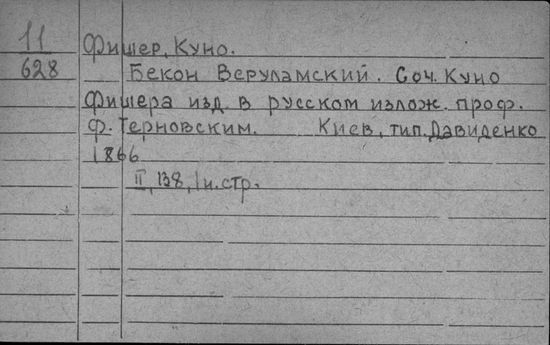 11
628
Фишер, Куно.
Бекон Веруламский. Соч. Куно
Фишера изд. в русском излож. проф.
Ф. Терновским. Киев, тип. Давиденко
1866
II, 138, 1 н. стр.